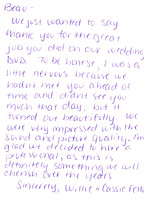 Beau-
We just wanted to say
thank you for the great
job you did on our wedding
DVD. To be honest, I was a
little nervous because we
hadnt met you ahead of
time and didnt see you
much that day, but it
turned our beautifully. We
were very impressed with the
sound and picture quality. I'm
glad we decided to hire a
professional, as this is
definitely something we will
cherish over the years.
Sincerely, Willie + Cassie